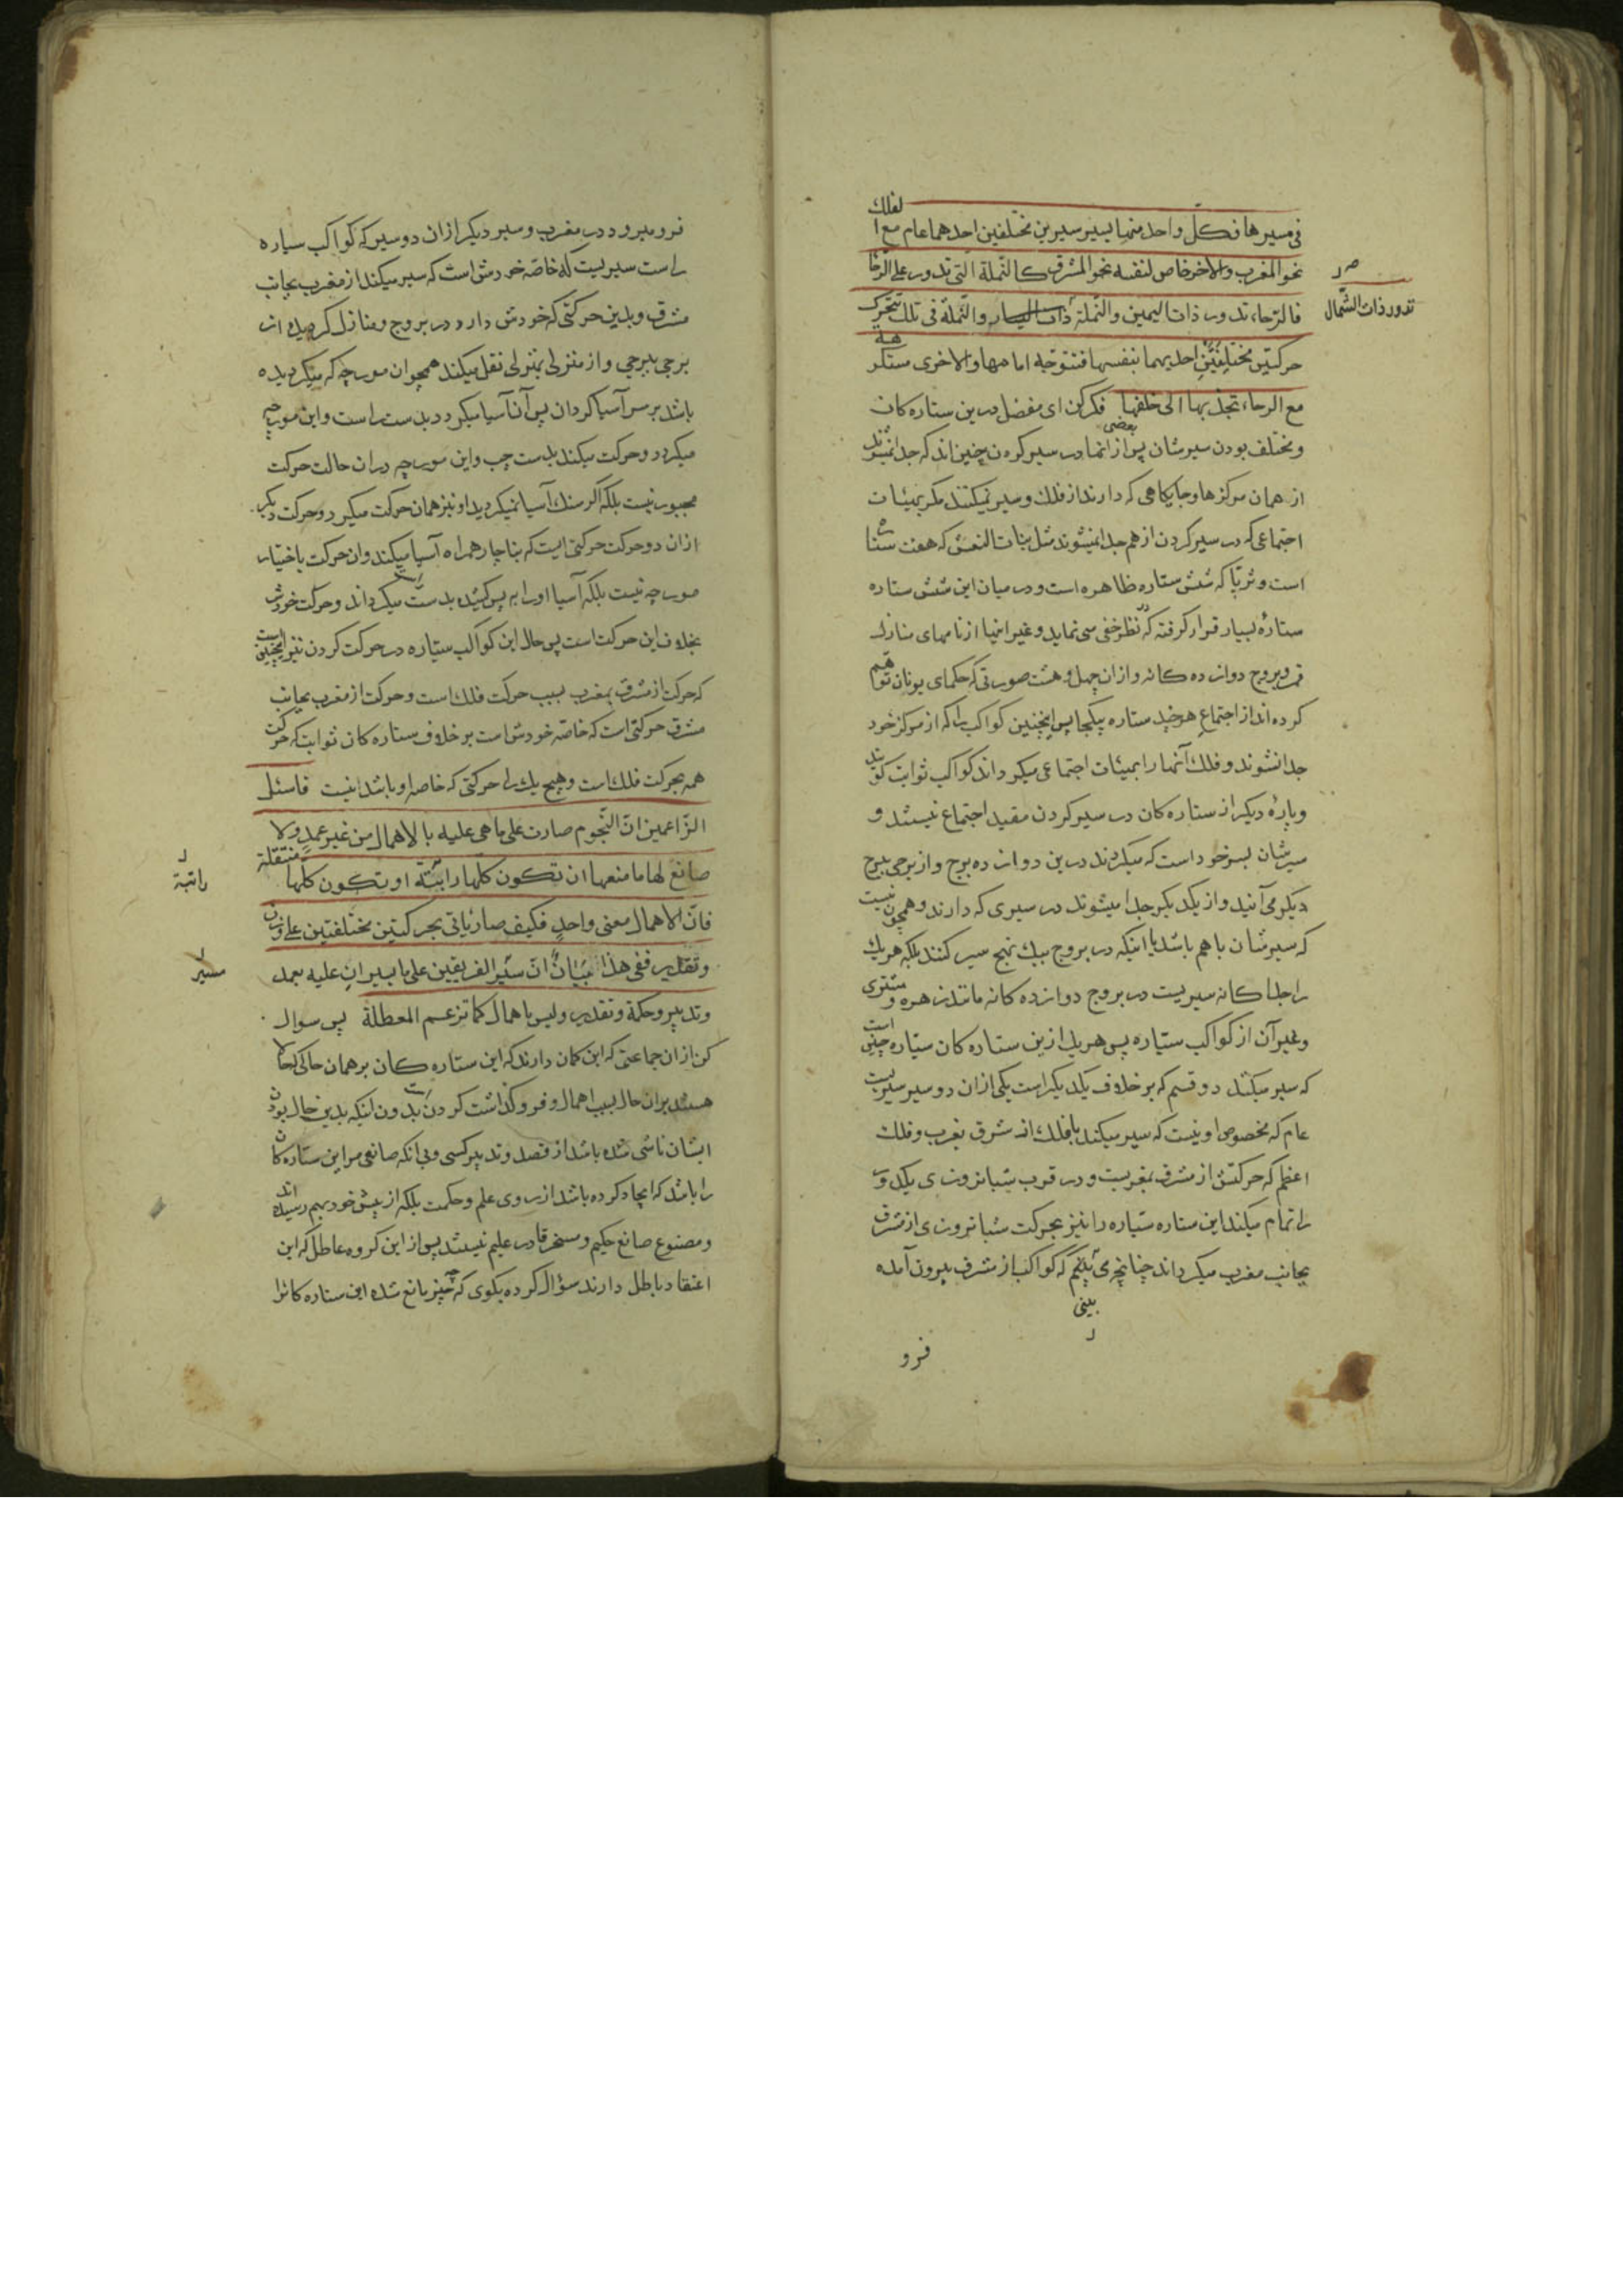 فی مسیرها فکلّ واحد منها یسیر سیرین مختلفین احدهما عام مع الفلک
نحو المغرب والاخر خاص لنفسه نحو المشرق کالنّملة الّتی تدور علی الرّحا
فالرّحاء تدور ذات الیمین والنّملة ذات الیسار والنّملة فی تلک تتحرک
تدور ذات الشّمال
حرکتین مختلفتین احدیهما بنفسها فتتوجّه امامها والاخری مستکرهة
مع الرحاء تجذبها الی خلفها فکر کن ای مفضل درین ستاره کان
ومختلف بودن سیرشان پس بعضی از انها در سیر کردن چنین اند که جدا نمیشوند
از همان مرکزها و جایکاهی که دارند از فلک و سیر نمیکنند مکر بهیئات
اجتماعی که در سیر کردن از هم جدا نمیشوند مثل بنات النعش که هفت ستاره
است و ثریّا که شش ستاره ظاهره است و در میان این شش ستاره
ستارهٔ بسیار قرار کرفته که در نظر خفی می نماید و غیر اینها از نامهای منازل
قمر و بروج دوازده کانه و از ان چهل و هشت صورتی که حکمای یونان توهم
کرده اند از اجتماع هر چند ستاره بیکجا پس اینچنین کواکب را که از مرکز خود
جدا نشوند و فلک آنها را بهیئات اجتماعی میکرداند کواکب ثوابت کویند
و پارهٔ دیکر از ستاره کان در سیر کردن مقید اجتماع نیستند و
سیرشان بسر خود است که میکردند درین دوازده برج و از برجی ببرج
دیکر می آیند و از یکدیکر جدا میشوند در سیری که دارند و همچون نیست
که سیرشان با هم باشد یا اینکه در بروج بیک نهج سیر کنند بلکه هر یک
را جدا کانه سیریست در بروج دوازده کانه مانند زهره و مشتری
و غیر آن از کواکب سیّاره پس هر یک ازین ستاره کان سیّاره چنین است
که سیر میکنند دو قسم که بر خلاف یکدیکر است یکی از ان دو سیر سیریست
عام که مخصوص او نیست که سیر میکند با فلک از مشرق بمغرب و فلک
اعظم که حرکتش از مشرق بمغربست و در قرب شبانروزی یکدور
را تمام میکند این ستاره سیّاره را نیز بحرکت شبانروزی از مشرق
بجانب مغرب میکرداند چنانچه می بینیم که کواکب از مشرق بیرون آمده
بینی
فرو
فرو میرود در مغرب و سیر دیکر از ان دو سیر که کواکب سیاره
راست سیریست که خاصّه خودش است که سیر میکند از مغرب بجانب
مشرق و بدین حرکتی که خودش دارد در بروج و منازل کردیده از
برجی ببرجی و از منزلی بمنزلی نقل میکند همچو ان مورچه که میکردیده
باشد بر سر آسیا کردان پس آن آسیا میکردد بدست راست و این مورچه
میکردد و حرکت میکند بدست چپ و این مورچه در ان حالت حرکت
مجبور نیست بلکه اکر سنک آسیا نمیکردید او نیز همان حرکت میکرد و حرکت دیکر
از ان دو حرکت حرکتی است که بناچار همراه آسیا میکند و ان حرکت باختیار
مورچه نیست بلکه آسیا او را به پس کشیده بدست راست میکرداند و حرکت خودش
بخلاف این حرکت است پس حال این کواکب سیّاره در حرکت کردن نیز اینچنین است
که حرکت از مشرق بمغرب بسبب حرکت فلک است و حرکت از مغرب بجانب
مشرق حرکتی است که خاصّه خودش است بر خلاف ستاره کان ثوابت که حرکت
همه بحرکت فلک است و هیچ یک را حرکتی که خاصه او باشد نیست فاسئل
الزّاعمین انّ النّجوم صارت علی ما هی علیه بالاهمال من غیر عمدٍ ولا
صانع لها ما منعها ان تکون کلها راتبة او تکون کلها منتقلة
راتبة
فانّ الاهمال معنی واحدٍ فکیف صار یاتی بحرکتین مختلفتین علی وزن
وتقدیر ففی هذا بیانٌ انّ سیر الفریقین علی ما یسیران علیه بعمد
مسیر
وتدبیر وحکمة وتقدیر ولیس باهمال کما تزعم المعطلة پس سوال
کن از ان جماعتی که این کمان دارند که این ستاره کان بر همان حالی که حالا
هستند بر ان حال بسبب اهمال و فرو کذاشت کردن است بدون اینکه بدین حال بودن
ایشان ناشی شده باشد از قصد و تدبیر کسی و بی آنکه صانعی مر این ستاره کان
را باشد که ایجاد کرده باشد از روی علم و حکمت بلکه از پیش خود بهم رسیده اند
و مصنوع صانع حکیم و مسخر قادر علیم نیستند پس از این کروه عاطل که این
اعتقاد باطل دارند سؤال کرده بکوی که چه چیز مانع شده این ستاره کانرا